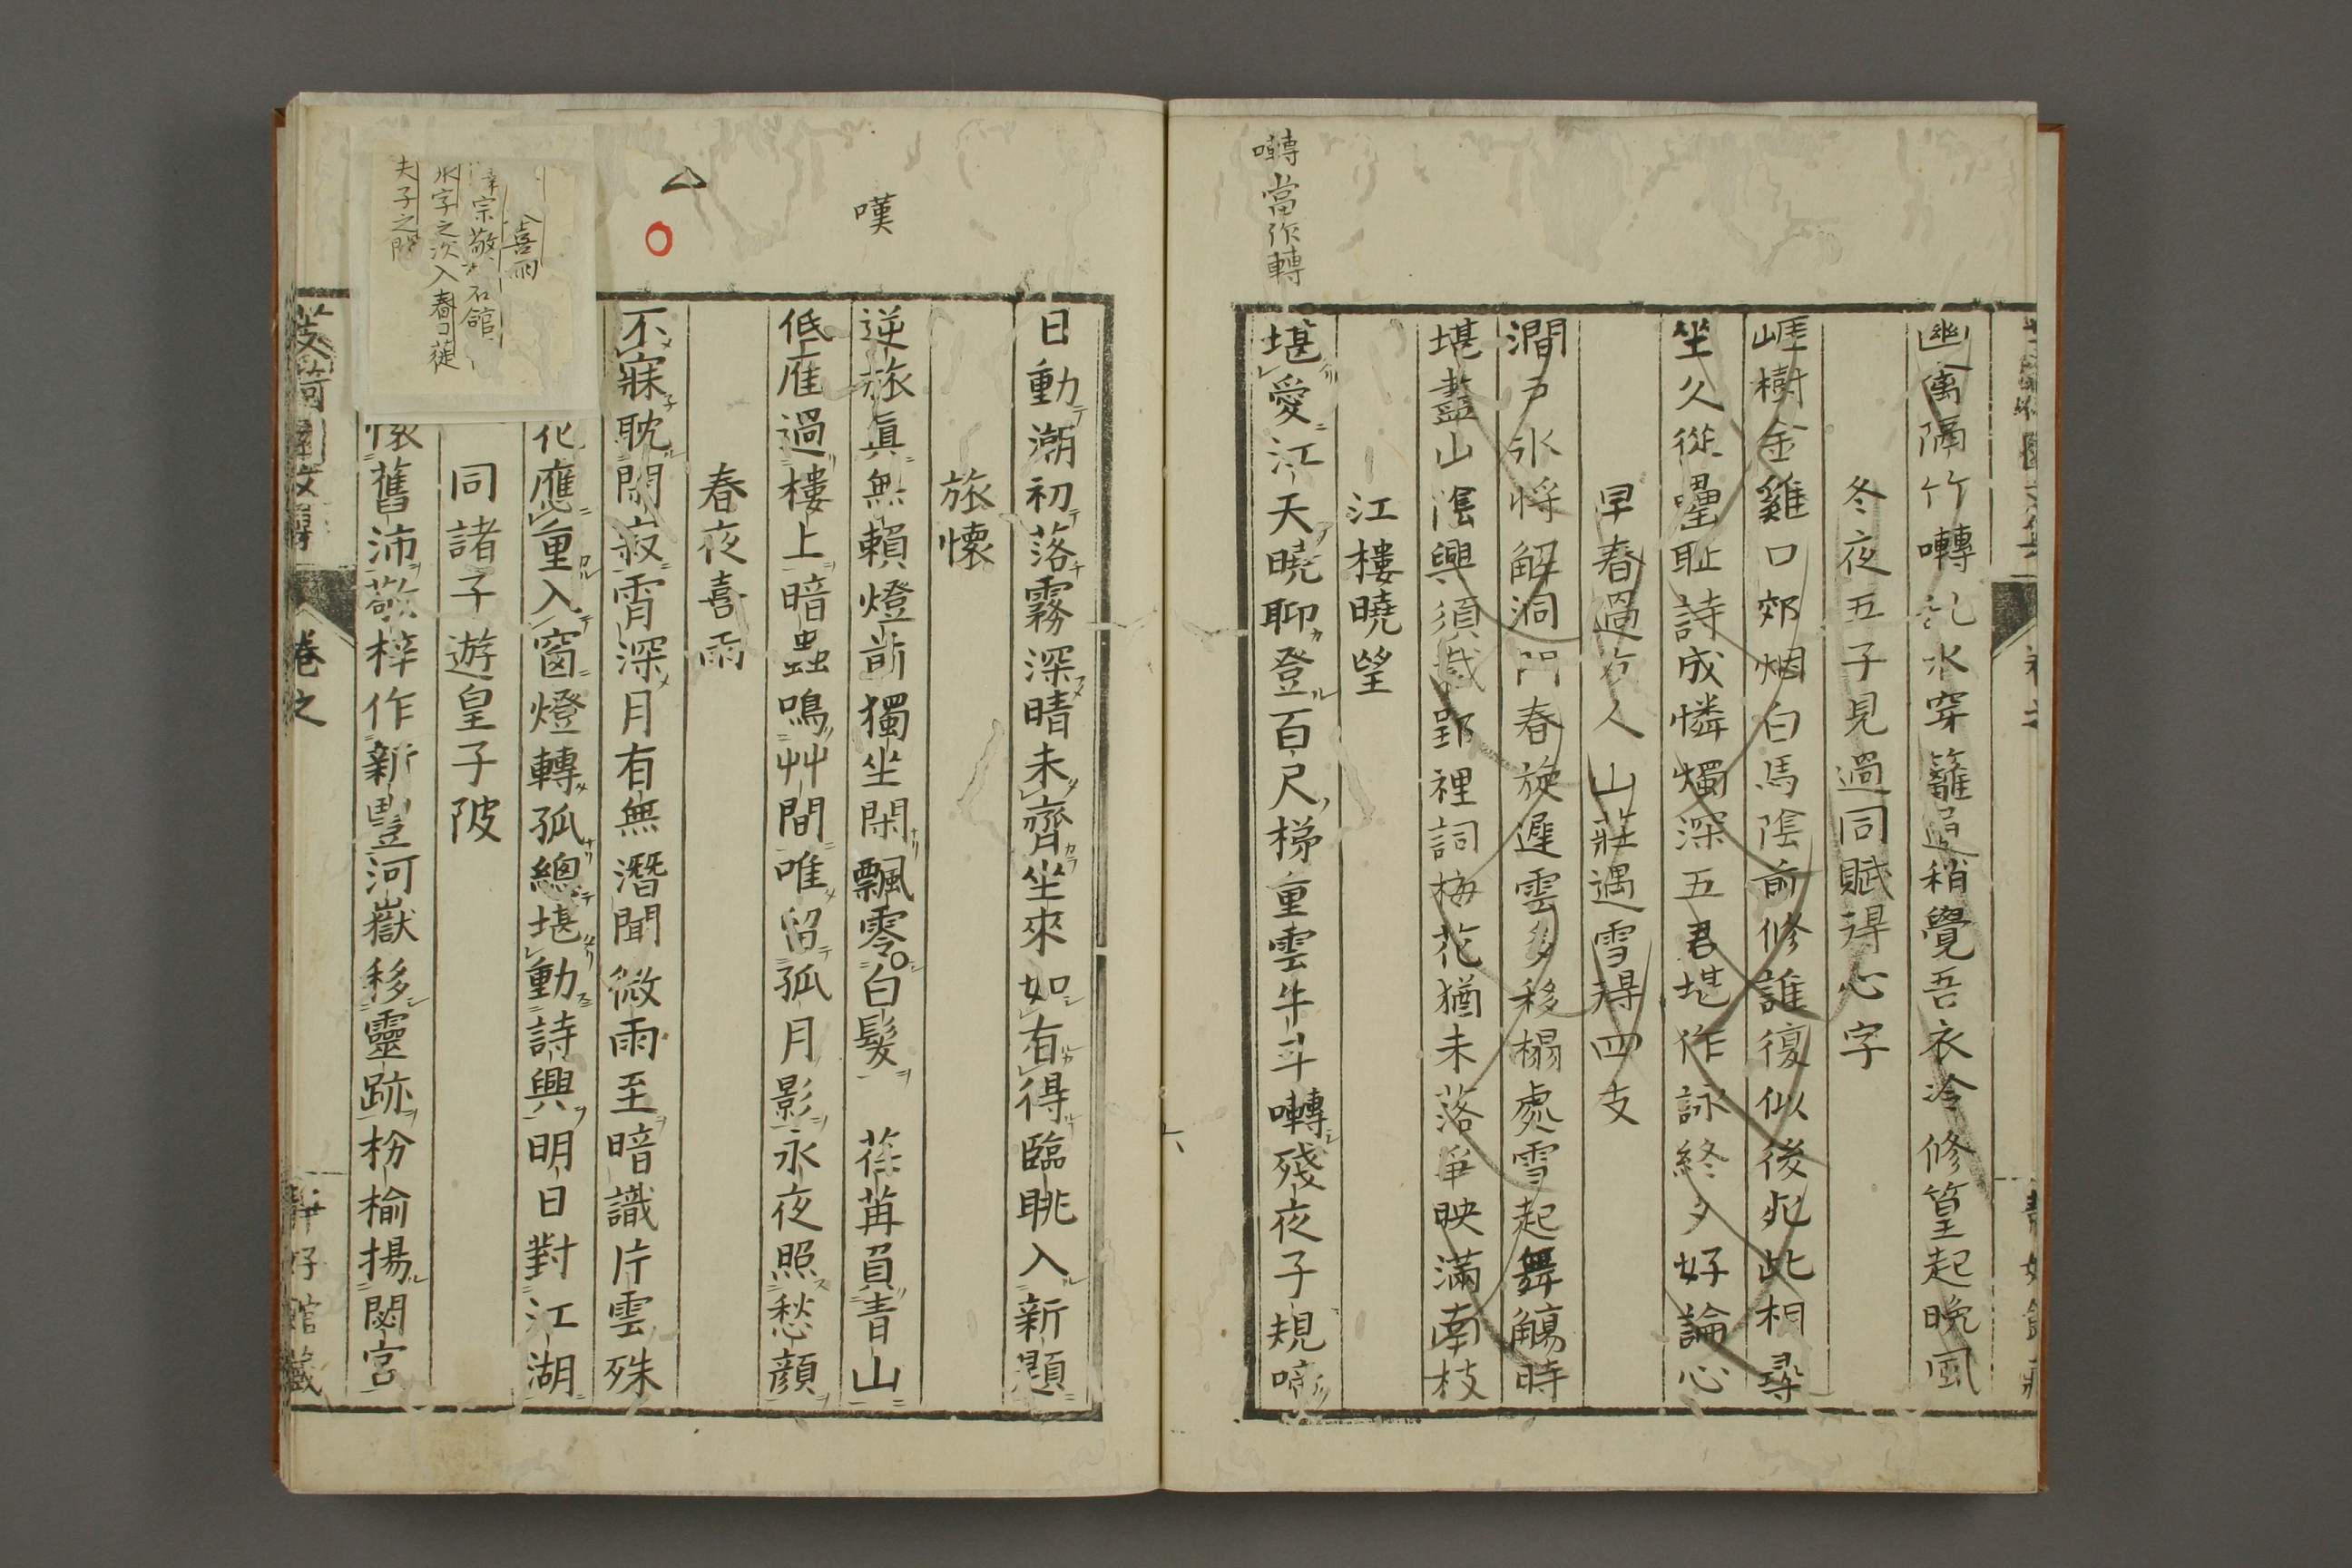 囀當作轉
幽寓隔竹囀乱水穿籬邊稍覺吾衣冷修篁起晩風
冬夜五子見過同賦得心字
崕樹金雞口郊烟白馬陰前修誰復似後死此相尋
坐久從壘耻詩成憐燭深五君堪作詠終夕好論心
早春過方人山莊遇雪得四支
澗戸氷将解洞門春旋遲雲多移榻處雪起舞觴時
堪盡山陰興須裁郢裡詞梅花猶未落爭映滿南枝
江樓曉望
堪愛江天曉聊登百尺梯重雲牛斗囀殘夜子規啼
嘆
日動潮初落霧深晴未齊坐來如有得臨眺入新題
旅懷
逆旅眞無賴燈前獨坐閑飄零白髮荏苒負青山
低雁過樓上暗蟲鳴艸間唯留孤月影永夜照愁顔
春夜喜雨
不寐耽閑寂宵深月有無潛聞微雨至暗識片雲殊
花應重入窗燈轉孤總堪動詩興明日對江湖
同諸子遊皇子陂
懷舊沛敬梓作新豐河嶽移靈跡枌榆揚閟宮
喜雨
宗敬 石館
字之次入春口莚
夫子之門
芰荷園文集
卷之
靜好館藏